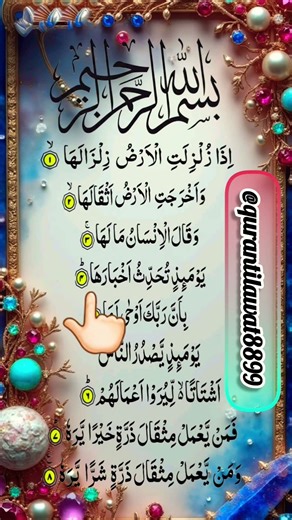 بسم الله الرحمن الرحيم
اِذَا زُلْزِلَتِ الْاَرْضُ زِلْزَالَهَا ۙ‏ ۱
وَاَخْرَجَتِ الْاَرْضُ اَثْقَالَهَا ۙ‏ ۲
وَقَالَ الْاِنْسَانُ مَا لَهَا ۚ‏ ۳
يَوْمَئِذٍ تُحَدِّثُ اَخْبَارَهَا ؕ‏ ۴
بِاَنَّ رَبَّكَ اَوْحٰى
يَوْمَئِذٍ يَّصْدُرُ النَّاسُ
اَشْتَاتًا ۙ لِّيُرَوْا اَعْمَالَهُمْ ؕ‏ ۶
فَمَنْ يَّعْمَلْ مِثْقَالَ ذَرَّةٍ خَيْرًا يَّرَهٗ ؕ‏ ۷
وَمَنْ يَّعْمَلْ مِثْقَالَ ذَرَّةٍ شَرًّا يَّرَهٗ ۸
@qurantilawat8899